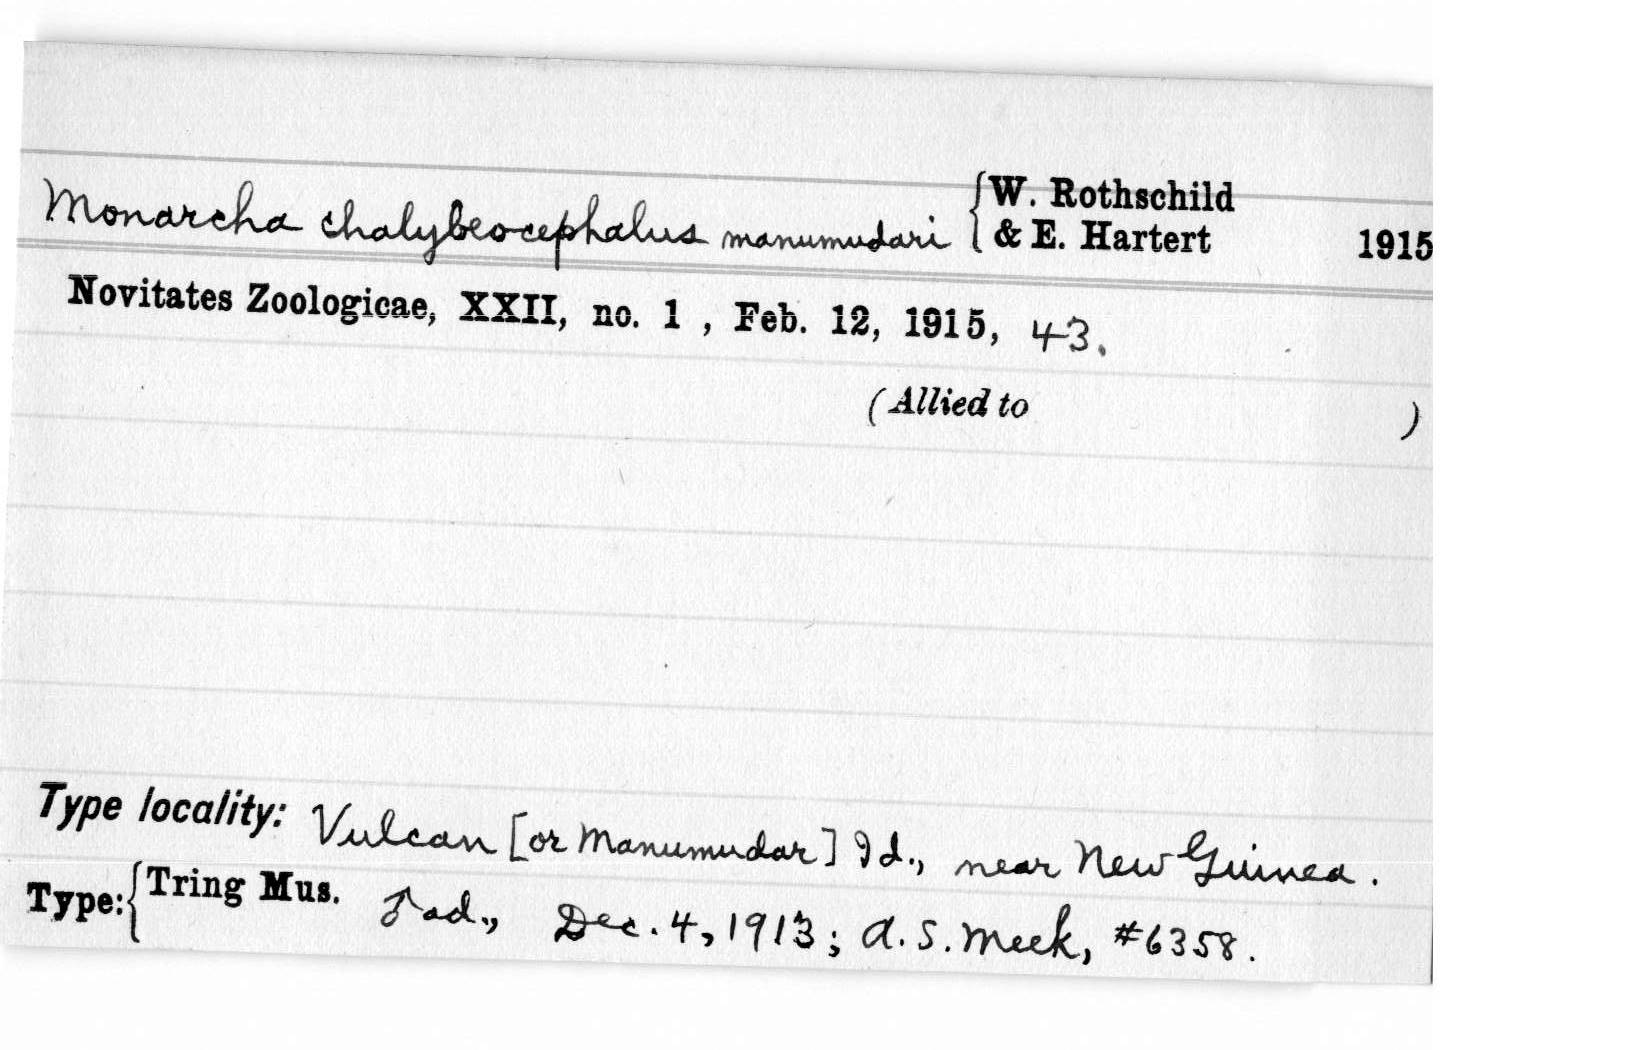 Monarcha chalybeocephalus manumudari { W. Rothschild & E. Hartert 1915
Novitates Zoologicae, XXII, no. 1 , Feb. 12, 1915, 43.
(Allied to )
Type locality: Vulcan [or Manumudar] Id., near New Guinea.
Type: { Tring Mus. ♂ ad., Dec. 4, 1913; A. S. Meek, #6358.